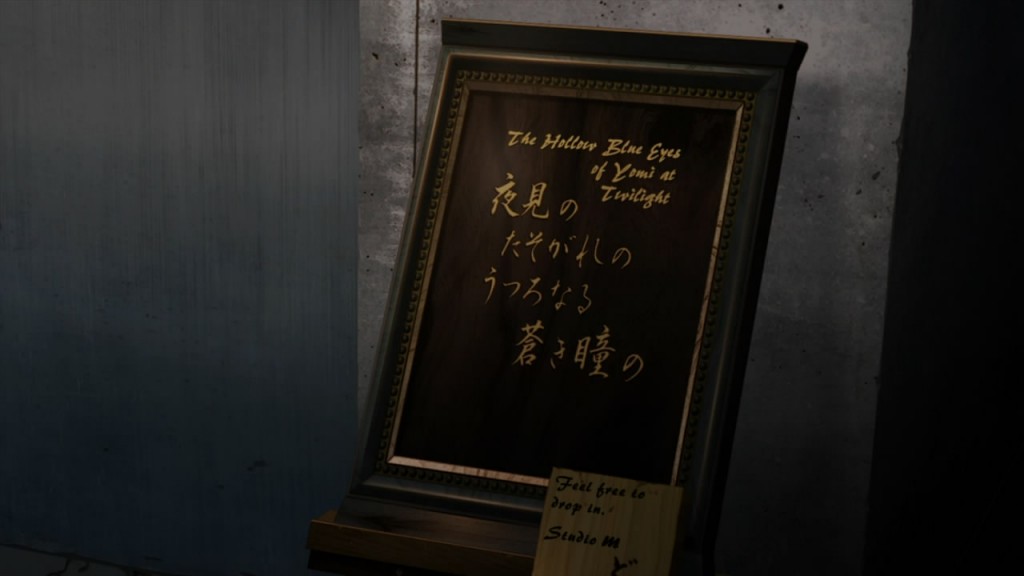 The Hollow Blue Eyes
of Yomi at
Twilight
夜見の
たそがれの
うつろなる
蒼き瞳の
Feel free to
drop in.
Studio M
ど